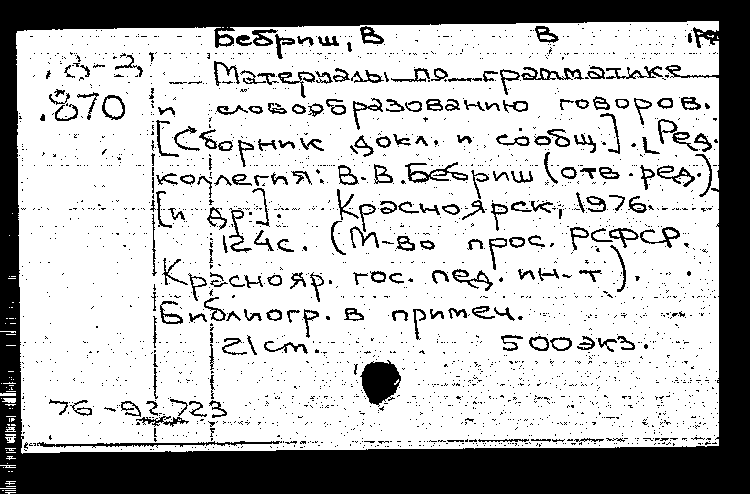 Бебриш, В В ред
.3-3 Материалы по грамматике
.870 и словообразованию говоров.
[Сборник докл. и сообщ.]. [Ред.
коллегия: В.В.Бебриш (отв. ред.)
[и др.]. Красноярск, 1976.
124с. (М-во прос. РСФСР.
Краснояр. гос. пед. ин-т).
Библиогр. в примеч.
21см. 500экз.
76-92723